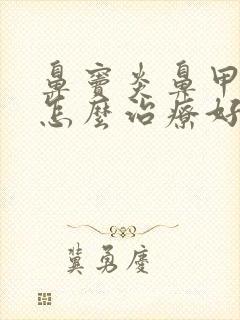 鼻窦炎鼻甲
怎麼治療好
冀勇慶